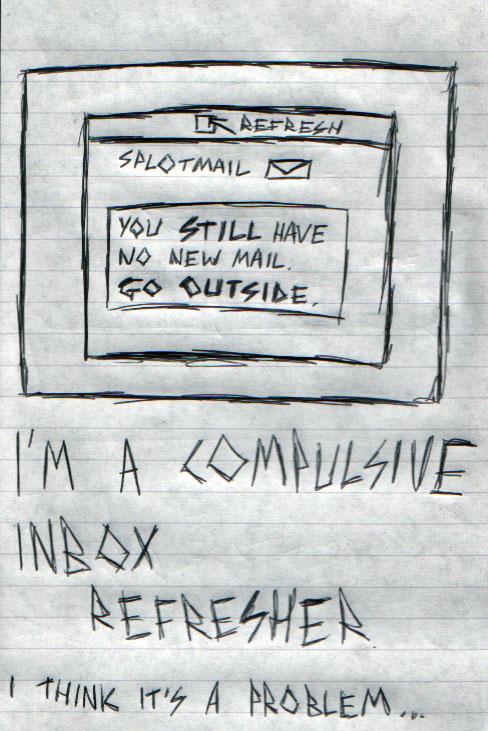 REFRESH
SPLOTMAIL
YOU STILL HAVE
NO NEW MAIL.
GO OUTSIDE.
I'M A COMPULSIVE
INBOX
REFRESHER
I THINK IT'S A PROBLEM...